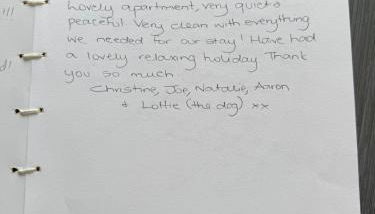 Lovely apartment, very quiet &
peaceful. Very clean with everything
we needed for our stay! Have had
a lovely relaxing holiday Thank
you so much.
Christine, Joe, Natalie, Aaron
& Lottie (the dog) xx